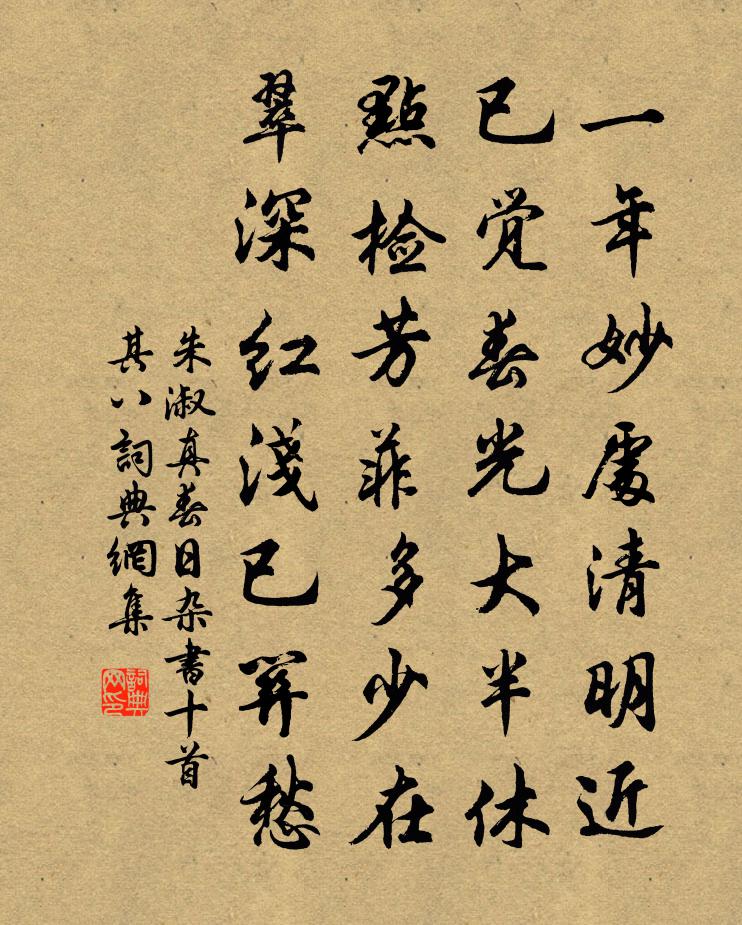 一年妙處清明近
已觉春光大半休
點检芳菲多少在
翠深红淺已関愁
朱淑真春日杂書十首
其八詞典網集
詞典
网印